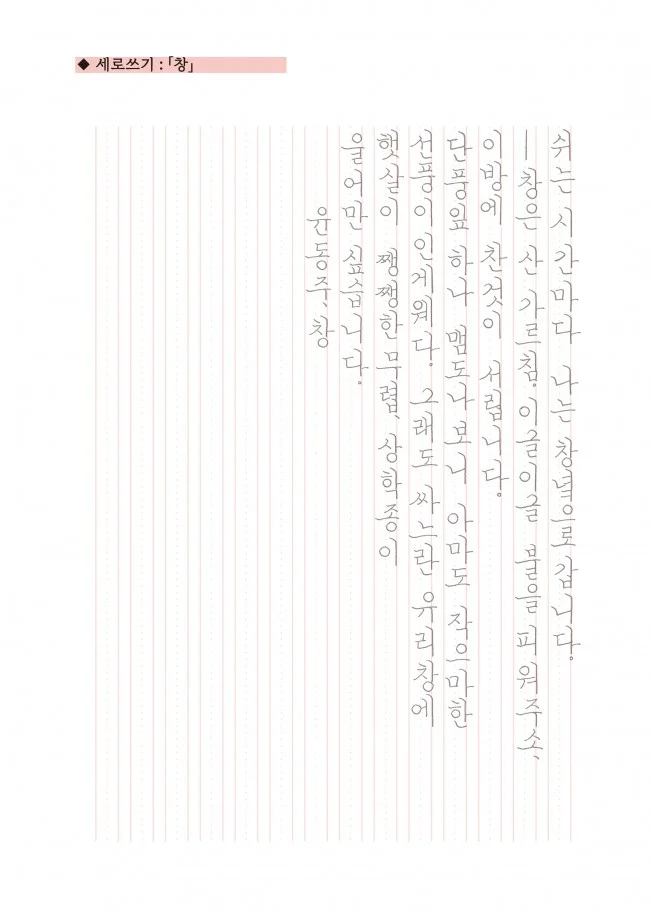 ◆ 세로쓰기 : 「창」
쉬는 시간마다 나는 창녘으로 갑니다.
─ 창은 산 가르침. 이글이글 불을 피워주소,
이방에 찬것이 서립니다.
단풍잎 하나 맴도나보니 아마도 작으마한
선풍이 인게워다. 그래도 싸느란 유리창에
햇살이 쨍쨍한 무렵, 상학종이
울어만 싶습니다.
윤동주, 창